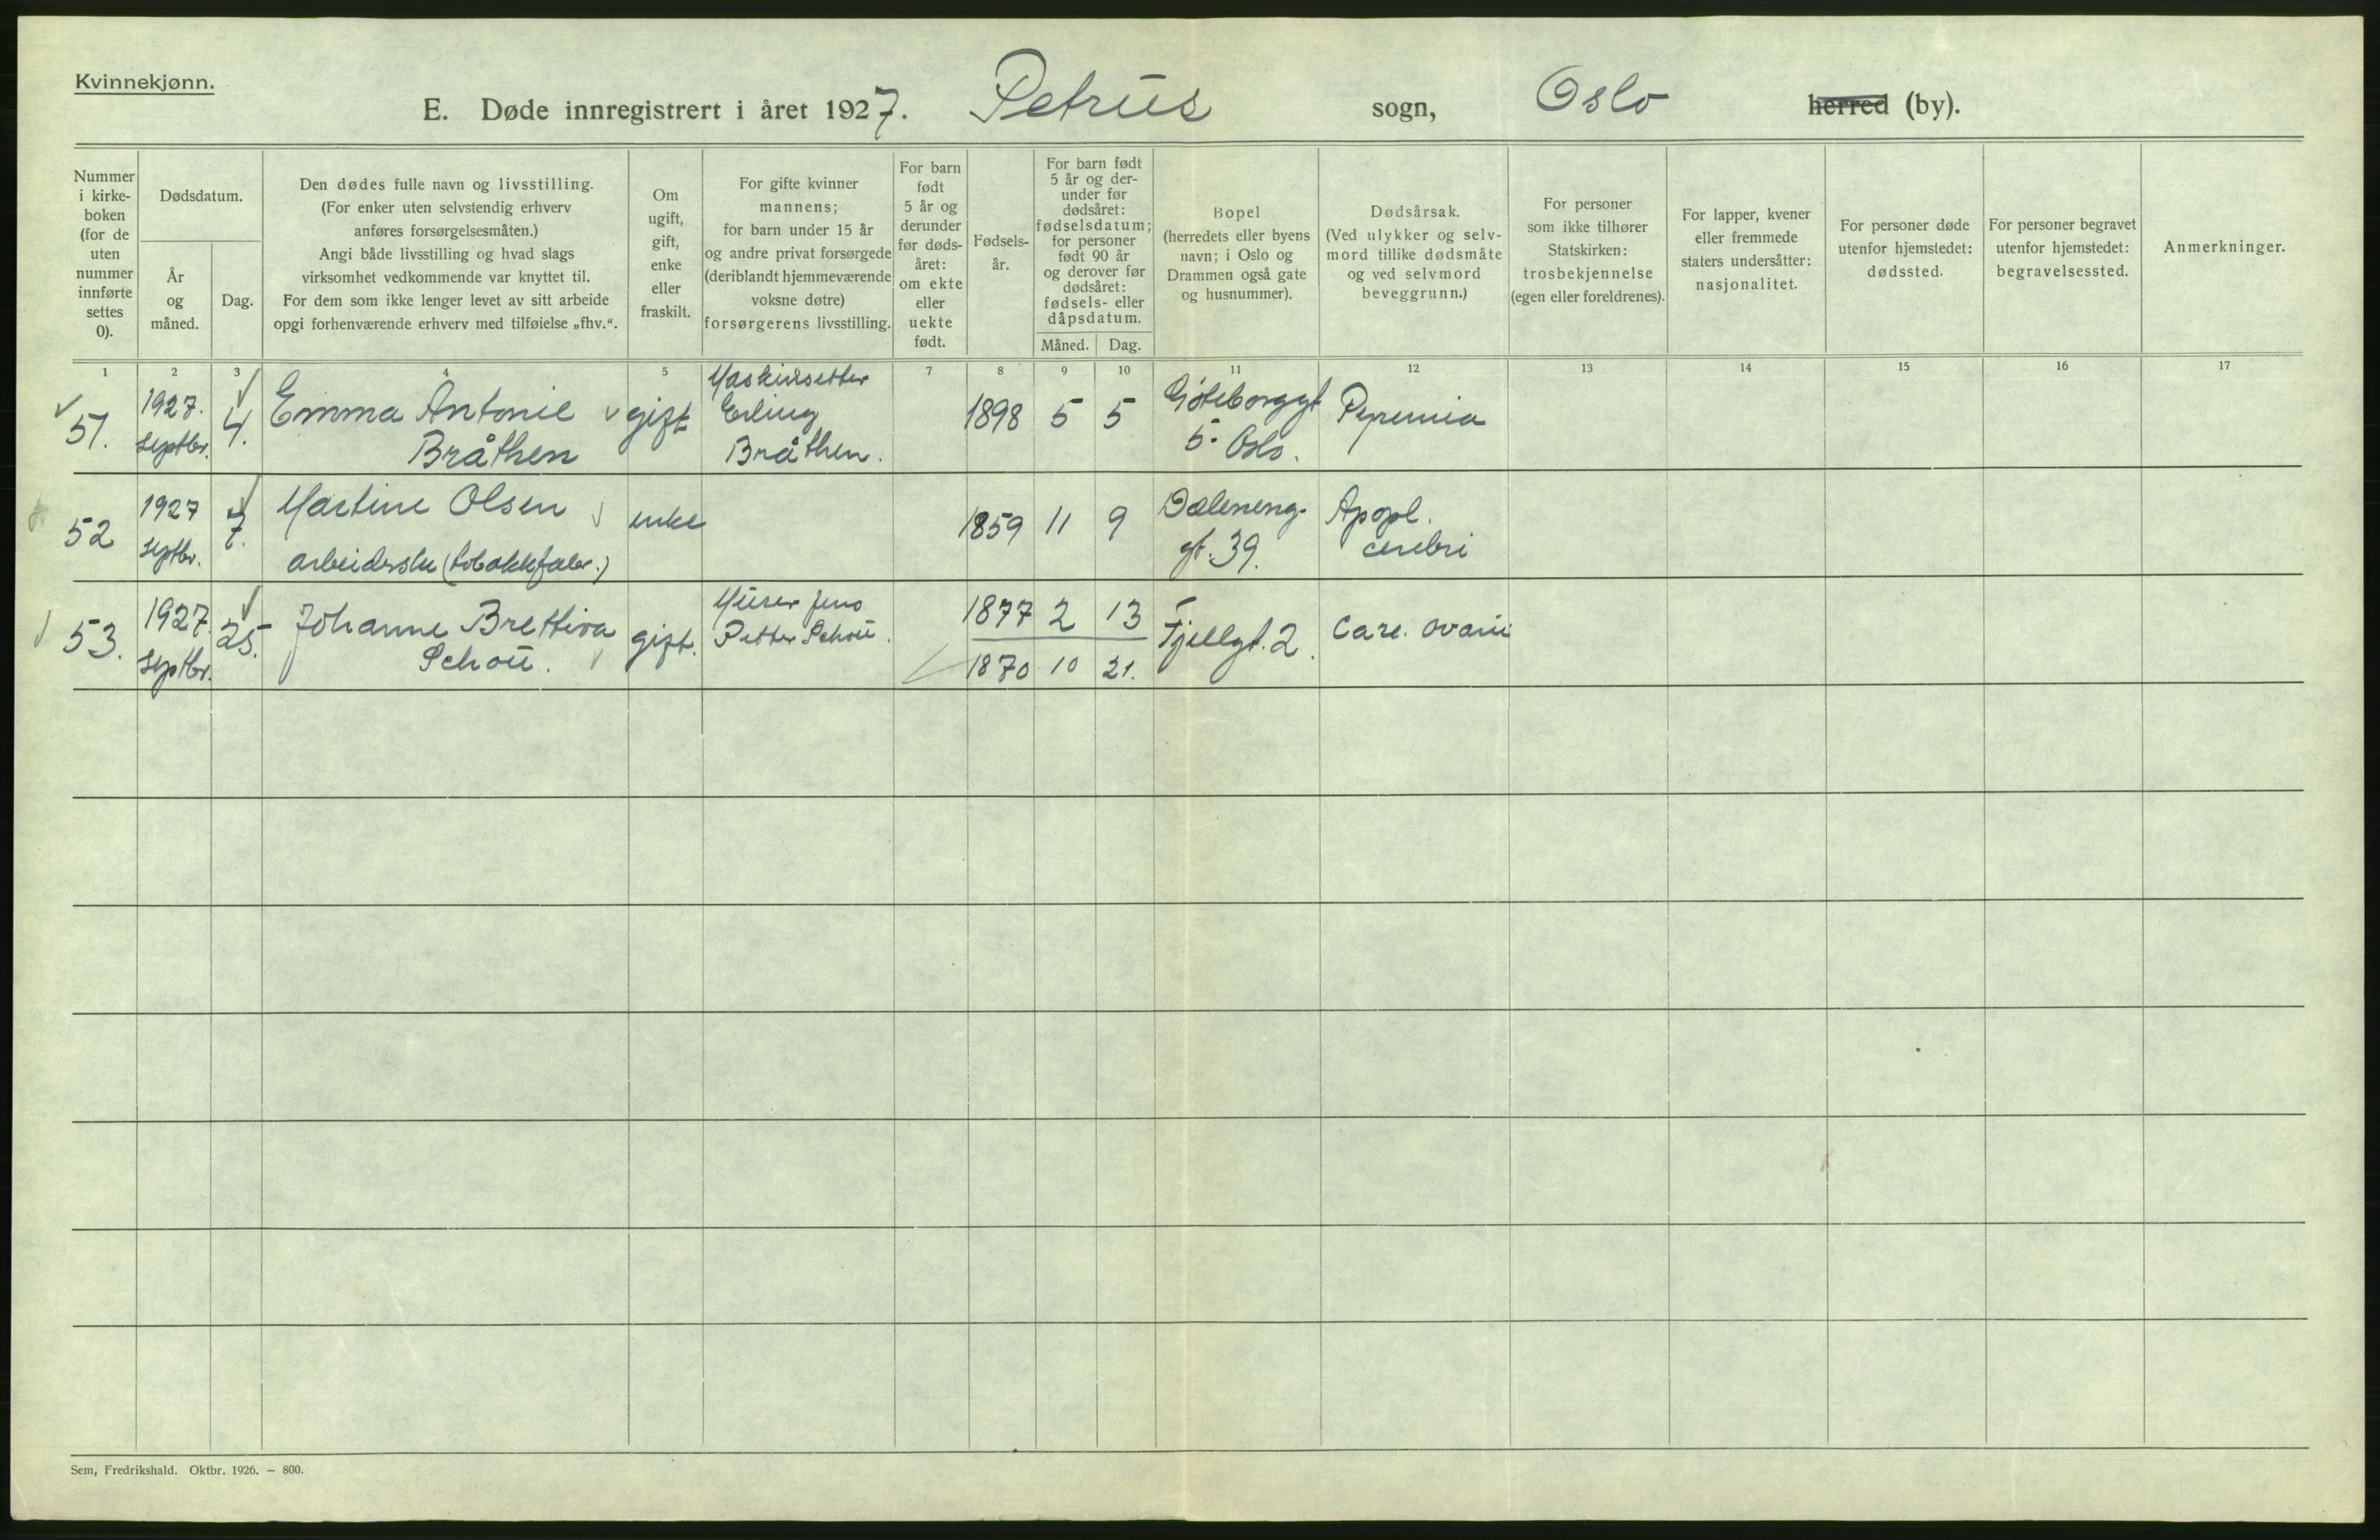 Kvinnekjønn.
E. Døde innregistrert i året 1927. Petrus sogn, Oslo herred (by).
Nummer
i kirke-
boken
(for de
uten
nummer
innførte
settes
0).
Dødsdatum.
År
og
måned.
Dag.
Den dødes fulle navn og livsstilling.
(For enker uten selvstendig erhverv
anføres forsørgelsesmåten.)
Angi både livsstilling og hvad slags
virksomhet vedkommende var knyttet til.
For dem som ikke lenger levet av sitt arbeide
opgi forhenværende erhverv med tilføielse „fhv.“.
Om
ugift,
gift,
enke
eller
fraskilt.
For gifte kvinner
mannens;
for barn under 15 år
og andre privat forsørgede
(deriblandt hjemmeværende
voksne døtre)
forsørgerens livsstilling.
For barn
født
5 år og
derunder
før døds-
året:
om ekte
eller
uekte
født.
Fødsels-
år.
For barn født
5 år og der-
under før
dødsåret:
fødselsdatum;
for personer
født 90 år
og derover før
dødsåret:
fødsels- eller
dåpsdatum.
Måned.
Dag.
Bopel
(herredets eller byens
navn; i Oslo og
Drammen også gate
og husnummer).
Dødsårsak.
(Ved ulykker og selv-
mord tillike dødsmåte
og ved selvmord
beveggrunn.)
For personer
som ikke tilhører
Statskirken:
trosbekjennelse
(egen eller foreldrenes).
For lapper, kvener
eller fremmede
staters undersåtter:
nasjonalitet.
For personer døde
utenfor hjemstedet:
dødssted.
For personer begravet
utenfor hjemstedet:
begravelsessted.
Anmerkninger.
1 2 3 4 5 7 8 9 10 11 12 13 14 15 16 17
51.
1927.
Septbr.
4.
Emma Antonie
Bråthen
gift
Maskinsetter
Erling
Bråthen.
1898 5 5
Göteborggt
5. Oslo.
Pyremia
52
1927
Septbr.
7.
Martine Olsen
arbeiderske (tobakkfabr.)
enke
1859 11 9
Dæleneng-
gt. 39.
Apopl.
cerebri
53.
1927.
Septbr.
25.
Johanne Brettiva
Schou.
gift.
Murer Jens
Petter Schou.
1877 2 13
1870 10 21.
Fjellgt. 2.
Carc. ovarii
Sem, Fredrikshald. Oktbr. 1926. — 800.